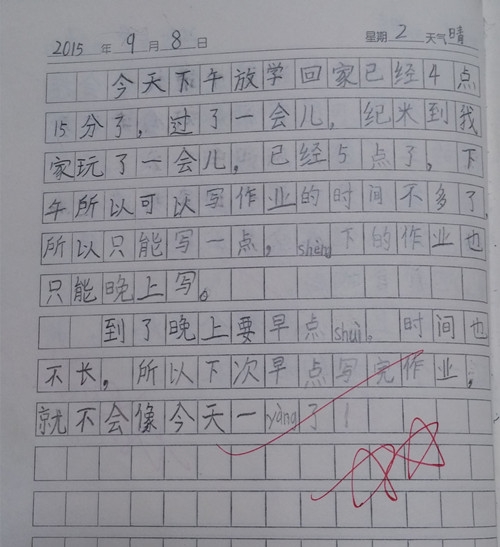 2015 年 9 月 8 日 星期 2 天气 晴
今天下午放学回家已经4点
15分了，过了一会儿，纪米到我
家玩了一会儿。已经5点了，下
午所以可以写作业的时间不多了，
所以只能写一点，shèng下的作业也
只能晚上写。
到了晚上要早点shuì。时间也
不长，所以下次早点写完作业，
就不会像今天一yàng了！